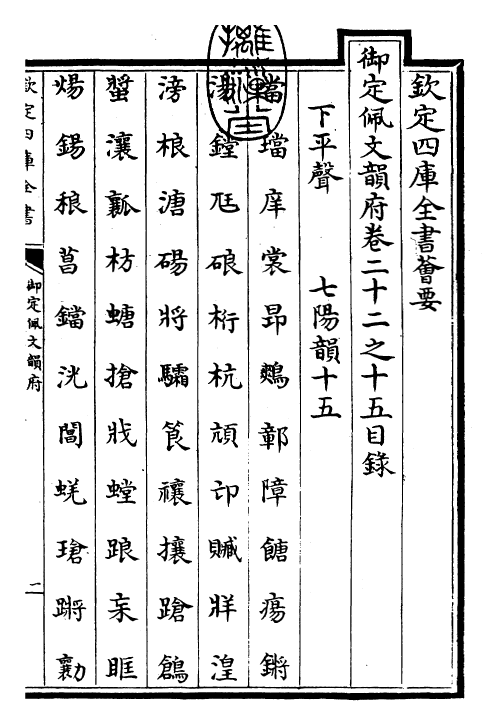 欽定四庫全書薈要
御定佩文韻府卷二十二之十五目錄
下平聲　七陽韻十五
璫庠裳昂鷞鄣障餹瘍鏘
鏜尪硠桁杭頏卬贓牂湟
滂桹溏碭將驦筤禳攘蹌鶬
蟹瀼瓤枋螗搶戕螳踉亲眶
煬鍚稂菖鐺洸閶蜣瑲蹡勷
欽定四庫全書
御定佩文韻府
二